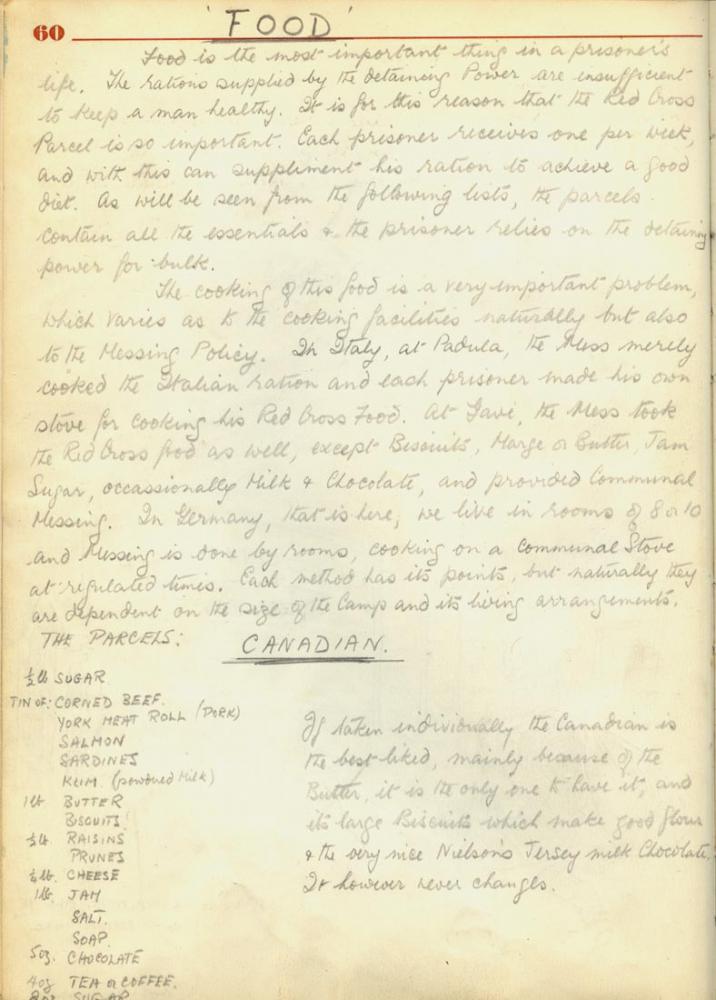 60
'FOOD'
Food is the most important thing in a prisoner's
life. The rations supplied by the detaining Power are insufficient
to keep a man healthy. It is for this reason that the Red Cross
Parcel is so important. Each prisoner receives one per week,
and with this can suppliment his ration to achieve a good
diet. As will be seen from the following lists, the parcels
contain all the essentials & the prisoner relies on the detaining
power for bulk.
The cooking of this food is a very important problem,
which varies as to the cooking facilities naturally but also
to the Messing Policy. In Italy, at Padula, the Mess merely
cooked the Italian ration and each prisoner made his own
stove for cooking his Red Cross Food. At Gavi, the Mess took
the Red Cross food as well, except Biscuits, Marge or Butter, Jam
Sugar, occassionally Milk & Chocolate, and provided Communal
Messing. In Germany, that is here, we live in rooms of 8 or 10
and Messing is done by rooms, cooking on a Communal Stove
at regulated times. Each method has its points, but naturally they
are dependent on the size of the Camp and its living arrangements.
THE PARCELS: CANADIAN.
½ lb SUGAR
TIN OF: CORNED BEEF.
YORK MEAT ROLL (PORK)
SALMON
SARDINES
KLIM (powdered Milk)
1lb BUTTER
BISCUITS
½lb. RAISINS
PRUNES
½lb. CHEESE
1lb. JAM
SALT.
SOAP.
5oz. CHOCOLATE
4oz TEA or COFFEE.
8oz SUGAR
If taken individually the Canadian is
the best liked, mainly because of the
Butter, it is the only one to have it, and
its large Biscuits which make good flour
& the very nice Nielson's Jersey milk Chocolate.
It however never changes.